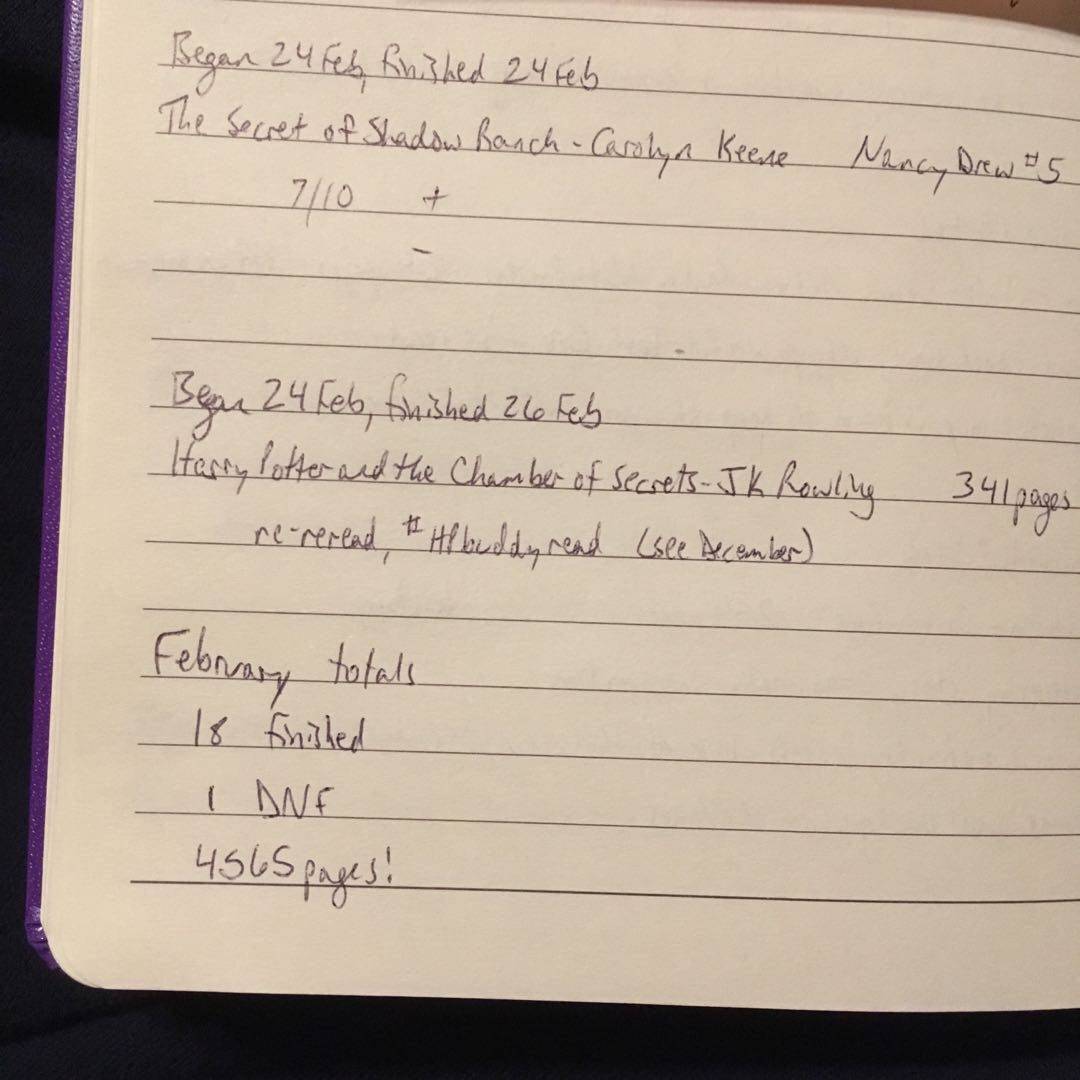 Began 24 Feb, finished 24 Feb
The Secret of Shadow Ranch - Carolyn Keene Nancy Drew #5
7/10 +
-
Began 24 Feb, finished 26 Feb
Harry Potter and the Chamber of Secrets - JK Rowling 341 pages
re-reread, #HPbuddyread (see December)
February totals
18 finished
1 DNF
4565 pages!